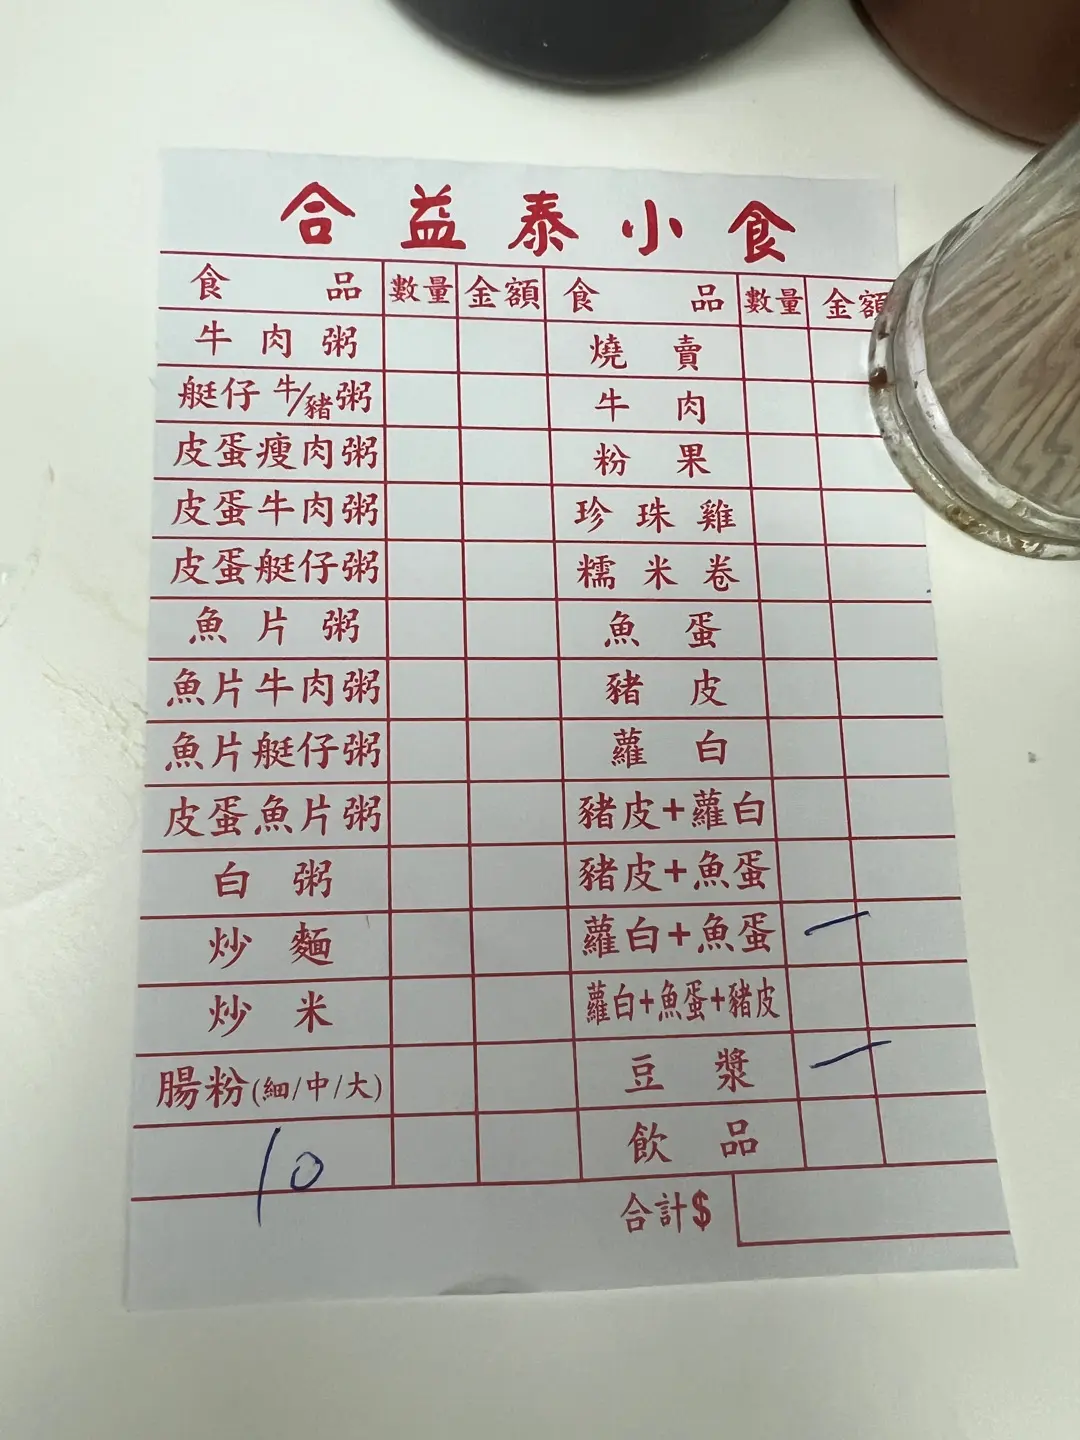 合益泰小食
食品 數量 金額 食品 數量 金額
牛肉粥 燒賣
艇仔牛/豬粥 牛肉
皮蛋瘦肉粥 粉果
皮蛋牛肉粥 珍珠雞
皮蛋艇仔粥 糯米卷
魚片粥 魚蛋
魚片牛肉粥 豬皮
魚片艇仔粥 蘿白
皮蛋魚片粥 豬皮+蘿白
白粥 豬皮+魚蛋
炒麵 蘿白+魚蛋 一
炒米 蘿白+魚蛋+豬皮
腸粉(細/中/大) 豆漿 一
10 飲品
合計$